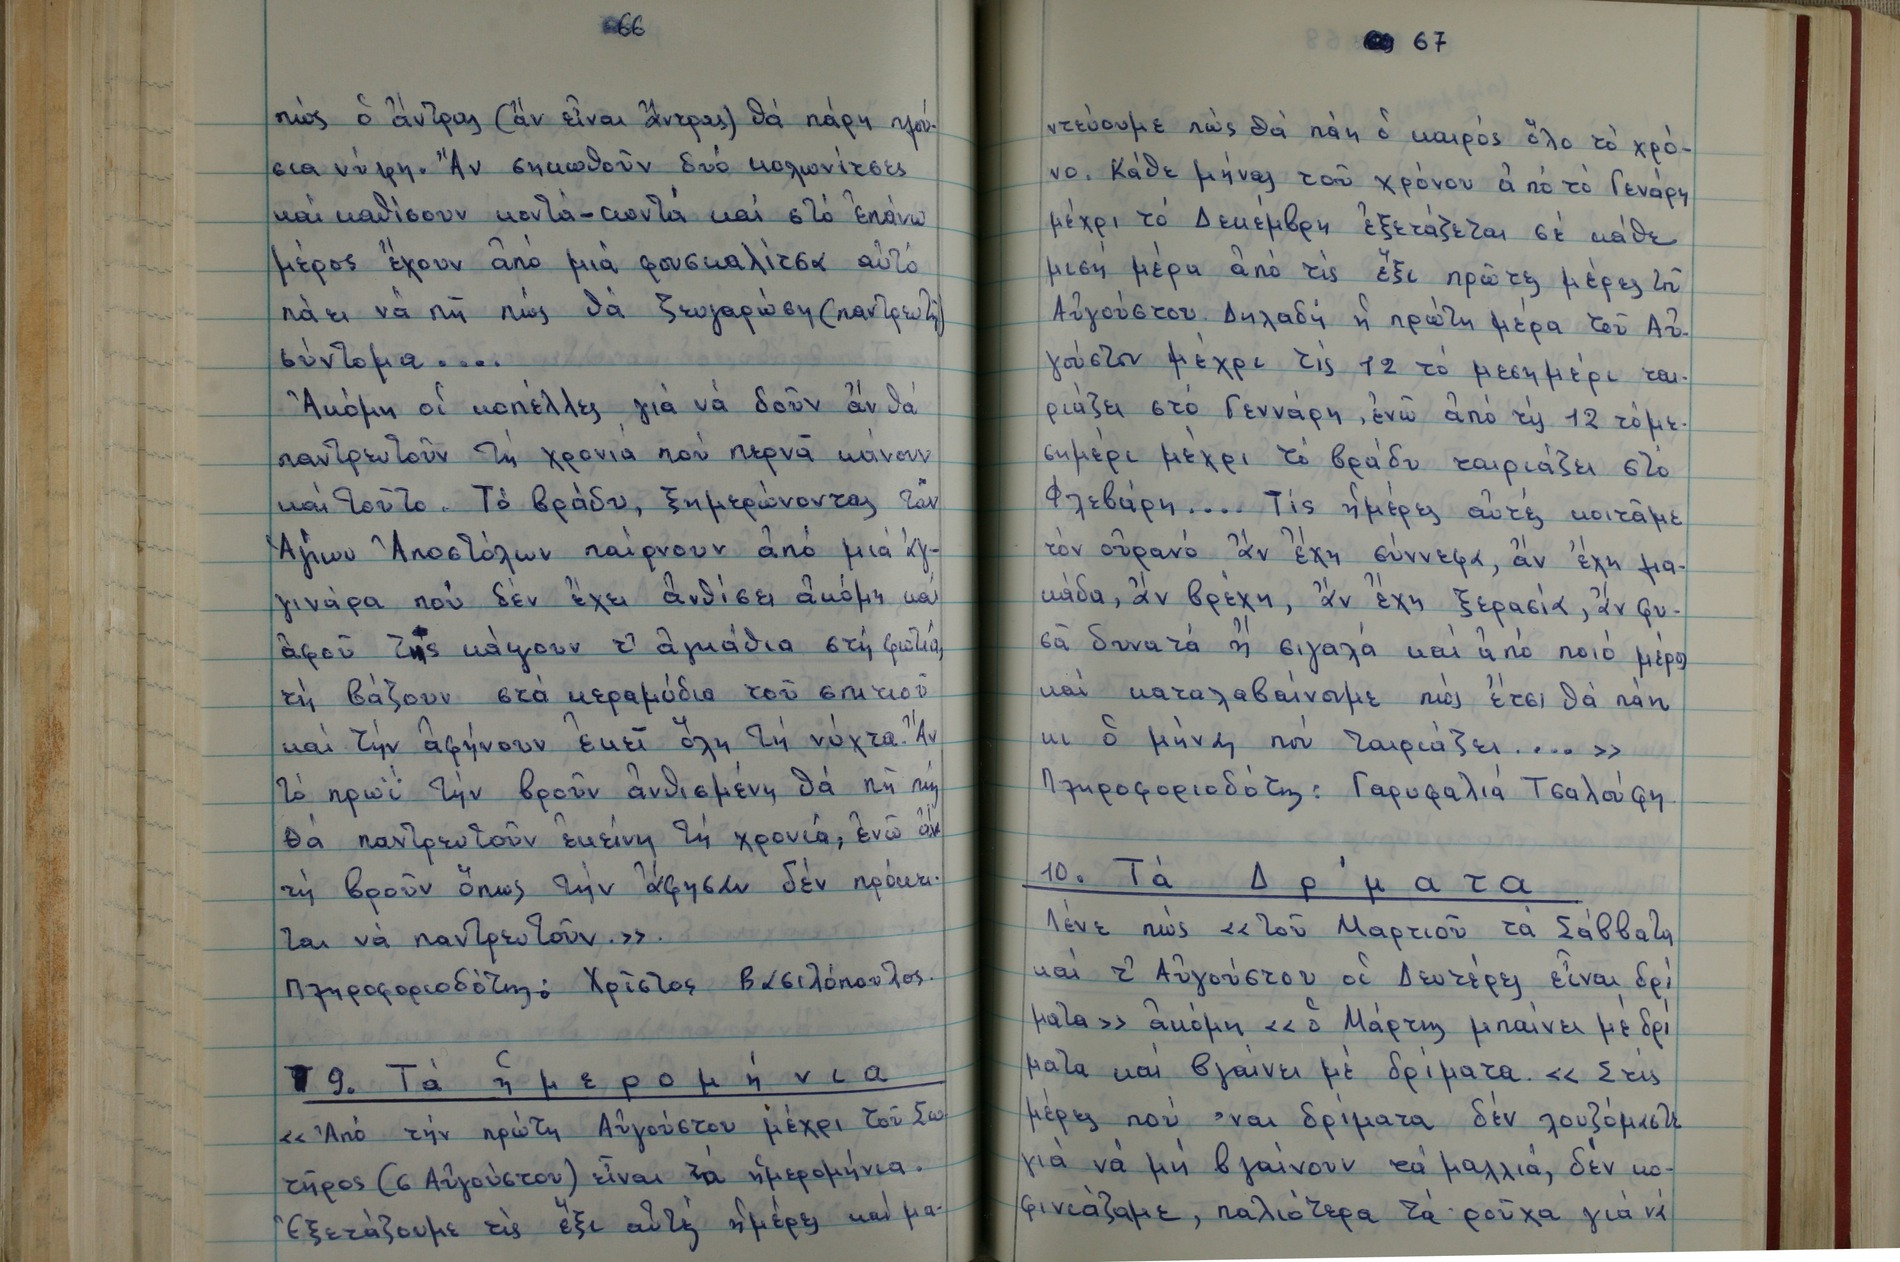 66
πώς ὁ ἄντρας (ἄν εἶναι ἄντρας) θά πάρη πλού-
σια νύφη. "Αν σηκωθοῦν δυό κολωνίτσες
καί καθίσουν κοντά-κοντά καί στό ἐπάνω
μέρος ἔχουν ἀπό μιά φουσκαλίτσα αὐτό
πάει νά πῆ πώς θά ζευγαρώση (παντρευτῆ)
σύντομα....
Ἀκόμη οἱ κοπέλλες γιά νά δοῦν ἄν θά
παντρευτοῦν τή χρονιά πού περνᾶ κάνουν
καί τοῦτο. Τό βράδυ, ξημερώνοντας τῶν
Ἁγίων Ἀποστόλων παίρνουν ἀπό μιά ἀγ-
γινάρα πού δέν ἔχει ἀνθίσει ἀκόμη καί
ἀφοῦ τῆς κάψουν τ' ἀγκάθια στή φωτιά,
τή βάζουν στά κεραμύδια τοῦ σπιτιοῦ
καί τήν ἀφήνουν ἐκεῖ ὅλη τή νύχτα. Ἄν
τό πρωΐ τήν βροῦν ἀνθισμένη θά πῆ πώς
θά παντρευτοῦν ἐκείνη τή χρονιά, ἐνῶ ἄν
τή βροῦν ὅπως τήν ἄφησαν δέν πρόκει-
ται νά παντρευτοῦν.».
Πληροφοριοδότης: Χρῖστος Βασιλόπουλος.
9. Τά ἡμερομήνια
«Ἀπό τήν πρώτη Αὐγούστου μέχρι τοῦ Σω
τῆρος (6 Αὐγούστου) εἶναι τά ἡμερομήνια.
Ἐξετάζουμε τίς ἕξι αὐτές ἡμέρες καί μα-
67
ντεύουμε πώς θά πάη ὁ καιρός ὅλο τό χρό-
νο. Κάθε μήνας τοῦ χρόνου ἀπό τό Γενάρη
μέχρι τό Δεκέμβρη ἐξετάζεται σέ κάθε
μισή μέρα ἀπό τίς ἕξι πρῶτες μέρες τοῦ
Αὐγούστου. Δηλαδή ἡ πρώτη μέρα τοῦ Αὐ-
γούστου μέχρι τίς 12 τό μεσημέρι ται-
ριάζει στό Γεννάρη, ἐνῶ ἀπό τίς 12 τό με-
σημέρι μέχρι τό βράδυ ταιριάζει στό
Φλεβάρη.... Τίς ἡμέρες αὐτές κοιτᾶμε
τόν οὐρανό ἄν ἔχη σύννεφα, ἄν ἔχη μα-
κάδα, ἄν βρέχη, ἄν ἔχη ξερασιά, ἄν φυ-
σᾶ δυνατά ἤ σιγαλά καί ἀπό ποιό μέρος
καί καταλαβαίνουμε πώς ἔτσι θά πάη
κι ὁ μήνας πού ταιριάζει....»
Πληροφοριοδότης: Γαρυφαλιά Τσαλούφη
10. Τά Δρίματα
Λένε πώς «τοῦ Μαρτιοῦ τά Σάββατα
καί τ' Αὐγούστου οἱ Δευτέρες εἶναι δρί
ματα» ἀκόμη «ὁ Μάρτης μπαίνει μέ δρί
ματα καί βγαίνει μέ δρίματα. «Στίς
μέρες πού 'ναι δρίματα δέν λουζόμαστε
γιά νά μή βγαίνουν τά μαλλιά, δέν κο-
φινιάζαμε, παλιότερα τά ροῦχα γιά νά